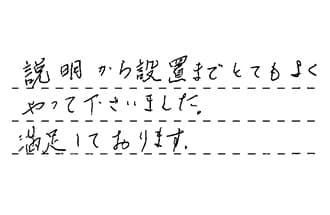 説明から設置までとてもよく
やって下さいました。
満足しております。